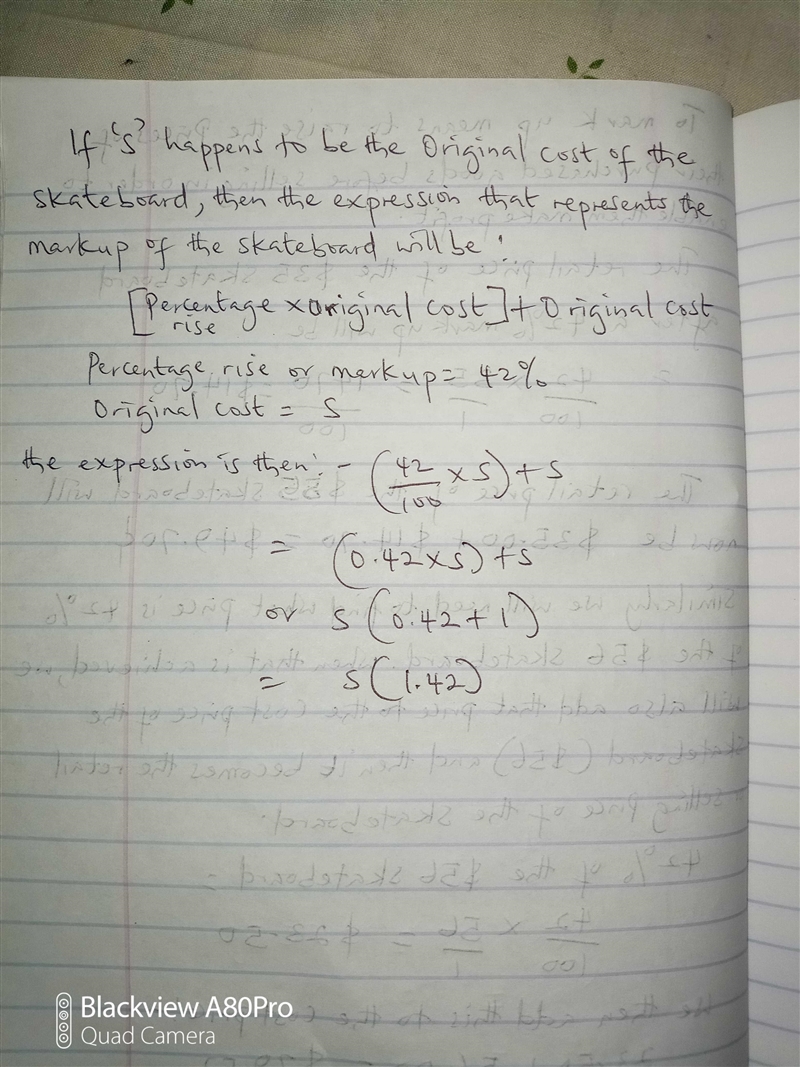 If 's' happens to be the Original cost of the
skateboard, then the expression that represents the
markup of the skateboard will be:
[Percentage x original cost] + Original cost
rise
Percentage rise or markup = 42%
Original cost = S
the expression is then: - (42/100 x S) + S
= (0.42 x S) + S
or S (0.42 + 1)
= S (1.42)
Blackview A80Pro
Quad Camera